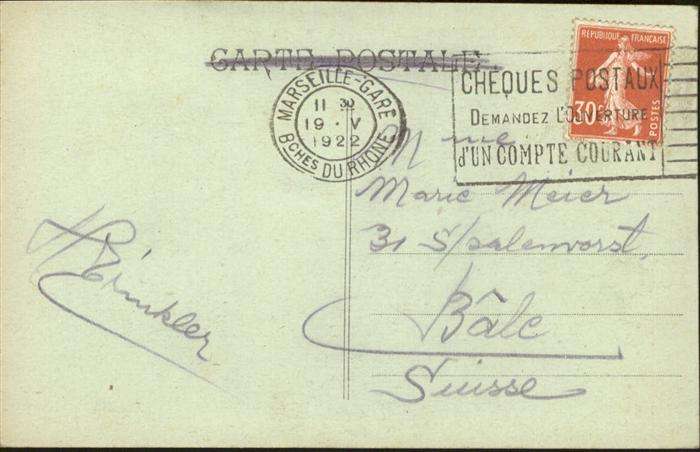 CARTE POSTALE
MARSEILLE-GARE
11 30
19 · V
1922
BCHES DU RHONE
REPUBLIQUE FRANÇAISE
30c
POSTES
CHEQUES POSTAUX
DEMANDEZ L'OUVERTURE
d'UN COMPTE COURANT
Mme
Marie Meier
31 Spalenvorst.
Bâle
Suisse